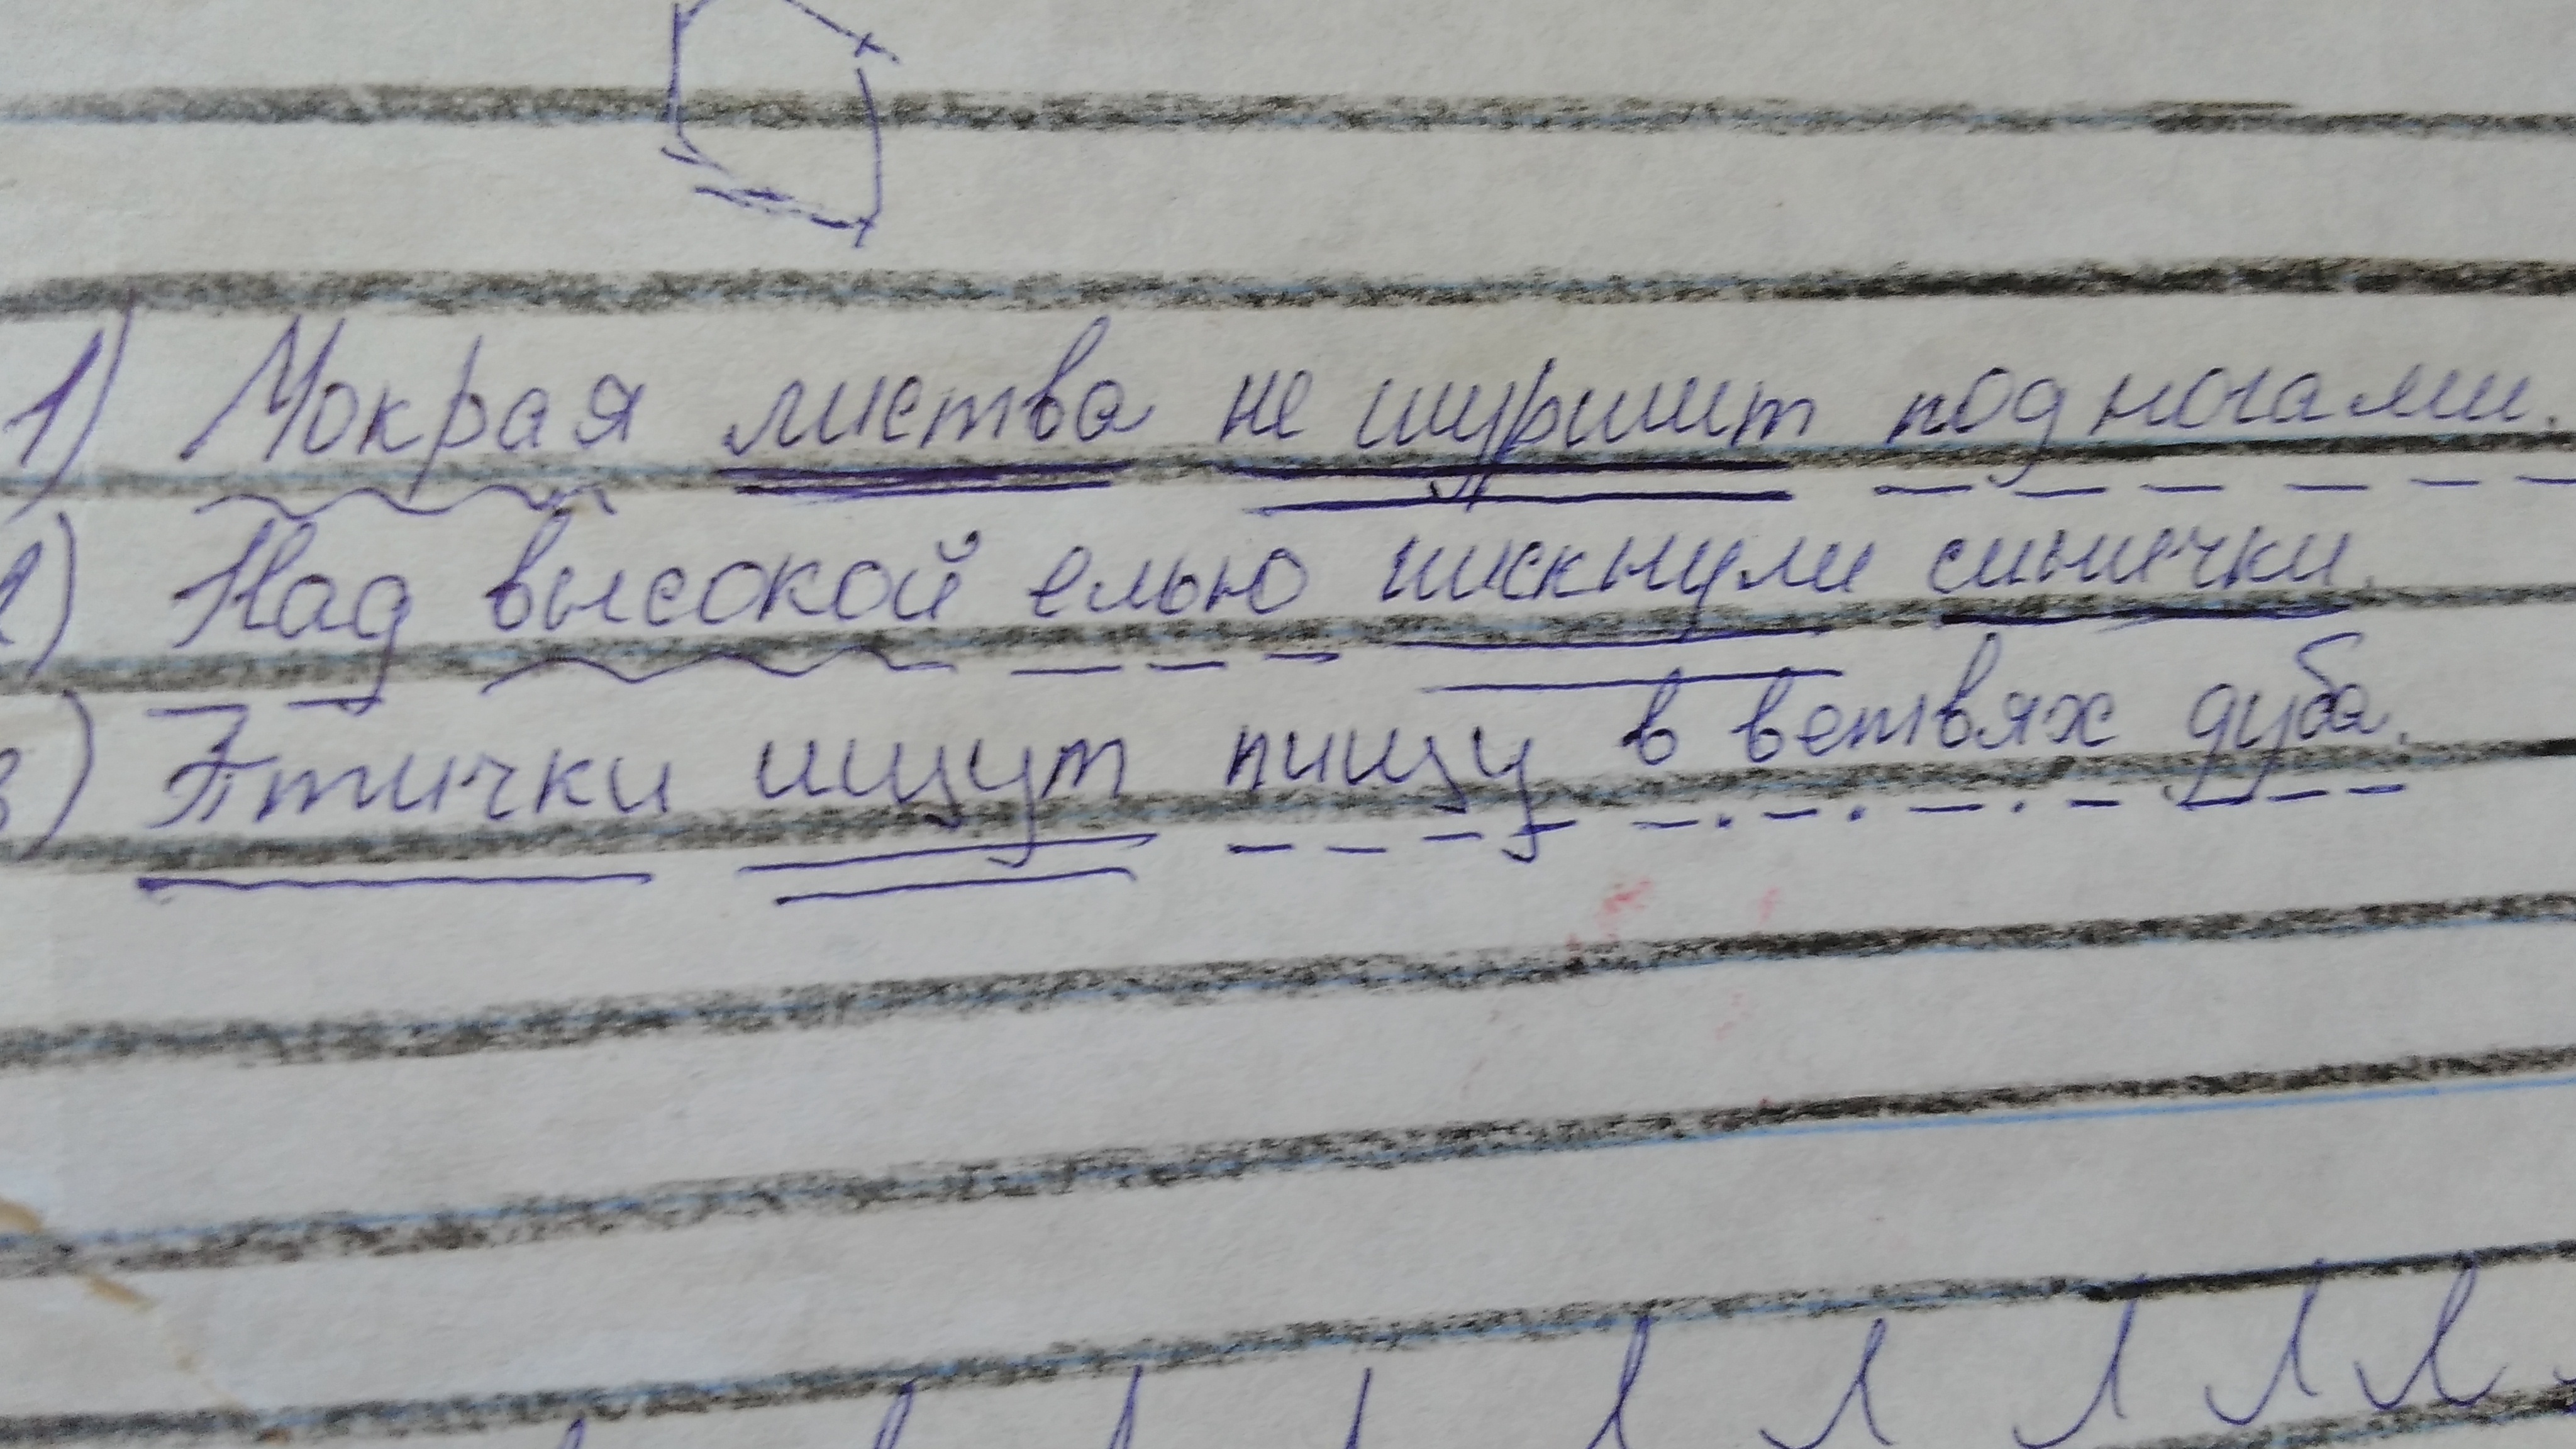 1) Мокрая листва не шуршит под ногами.
2) Над высокой елью пискнули синички.
3) Птички ищут пищу в ветвях дуба.